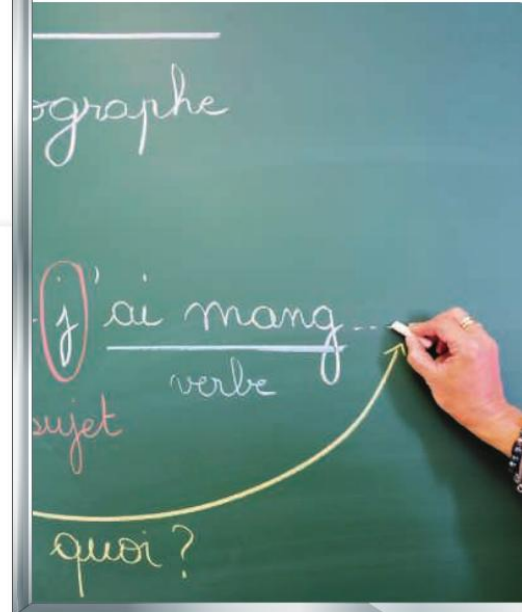 ographe
j'ai mang...
verbe
sujet
quoi ?